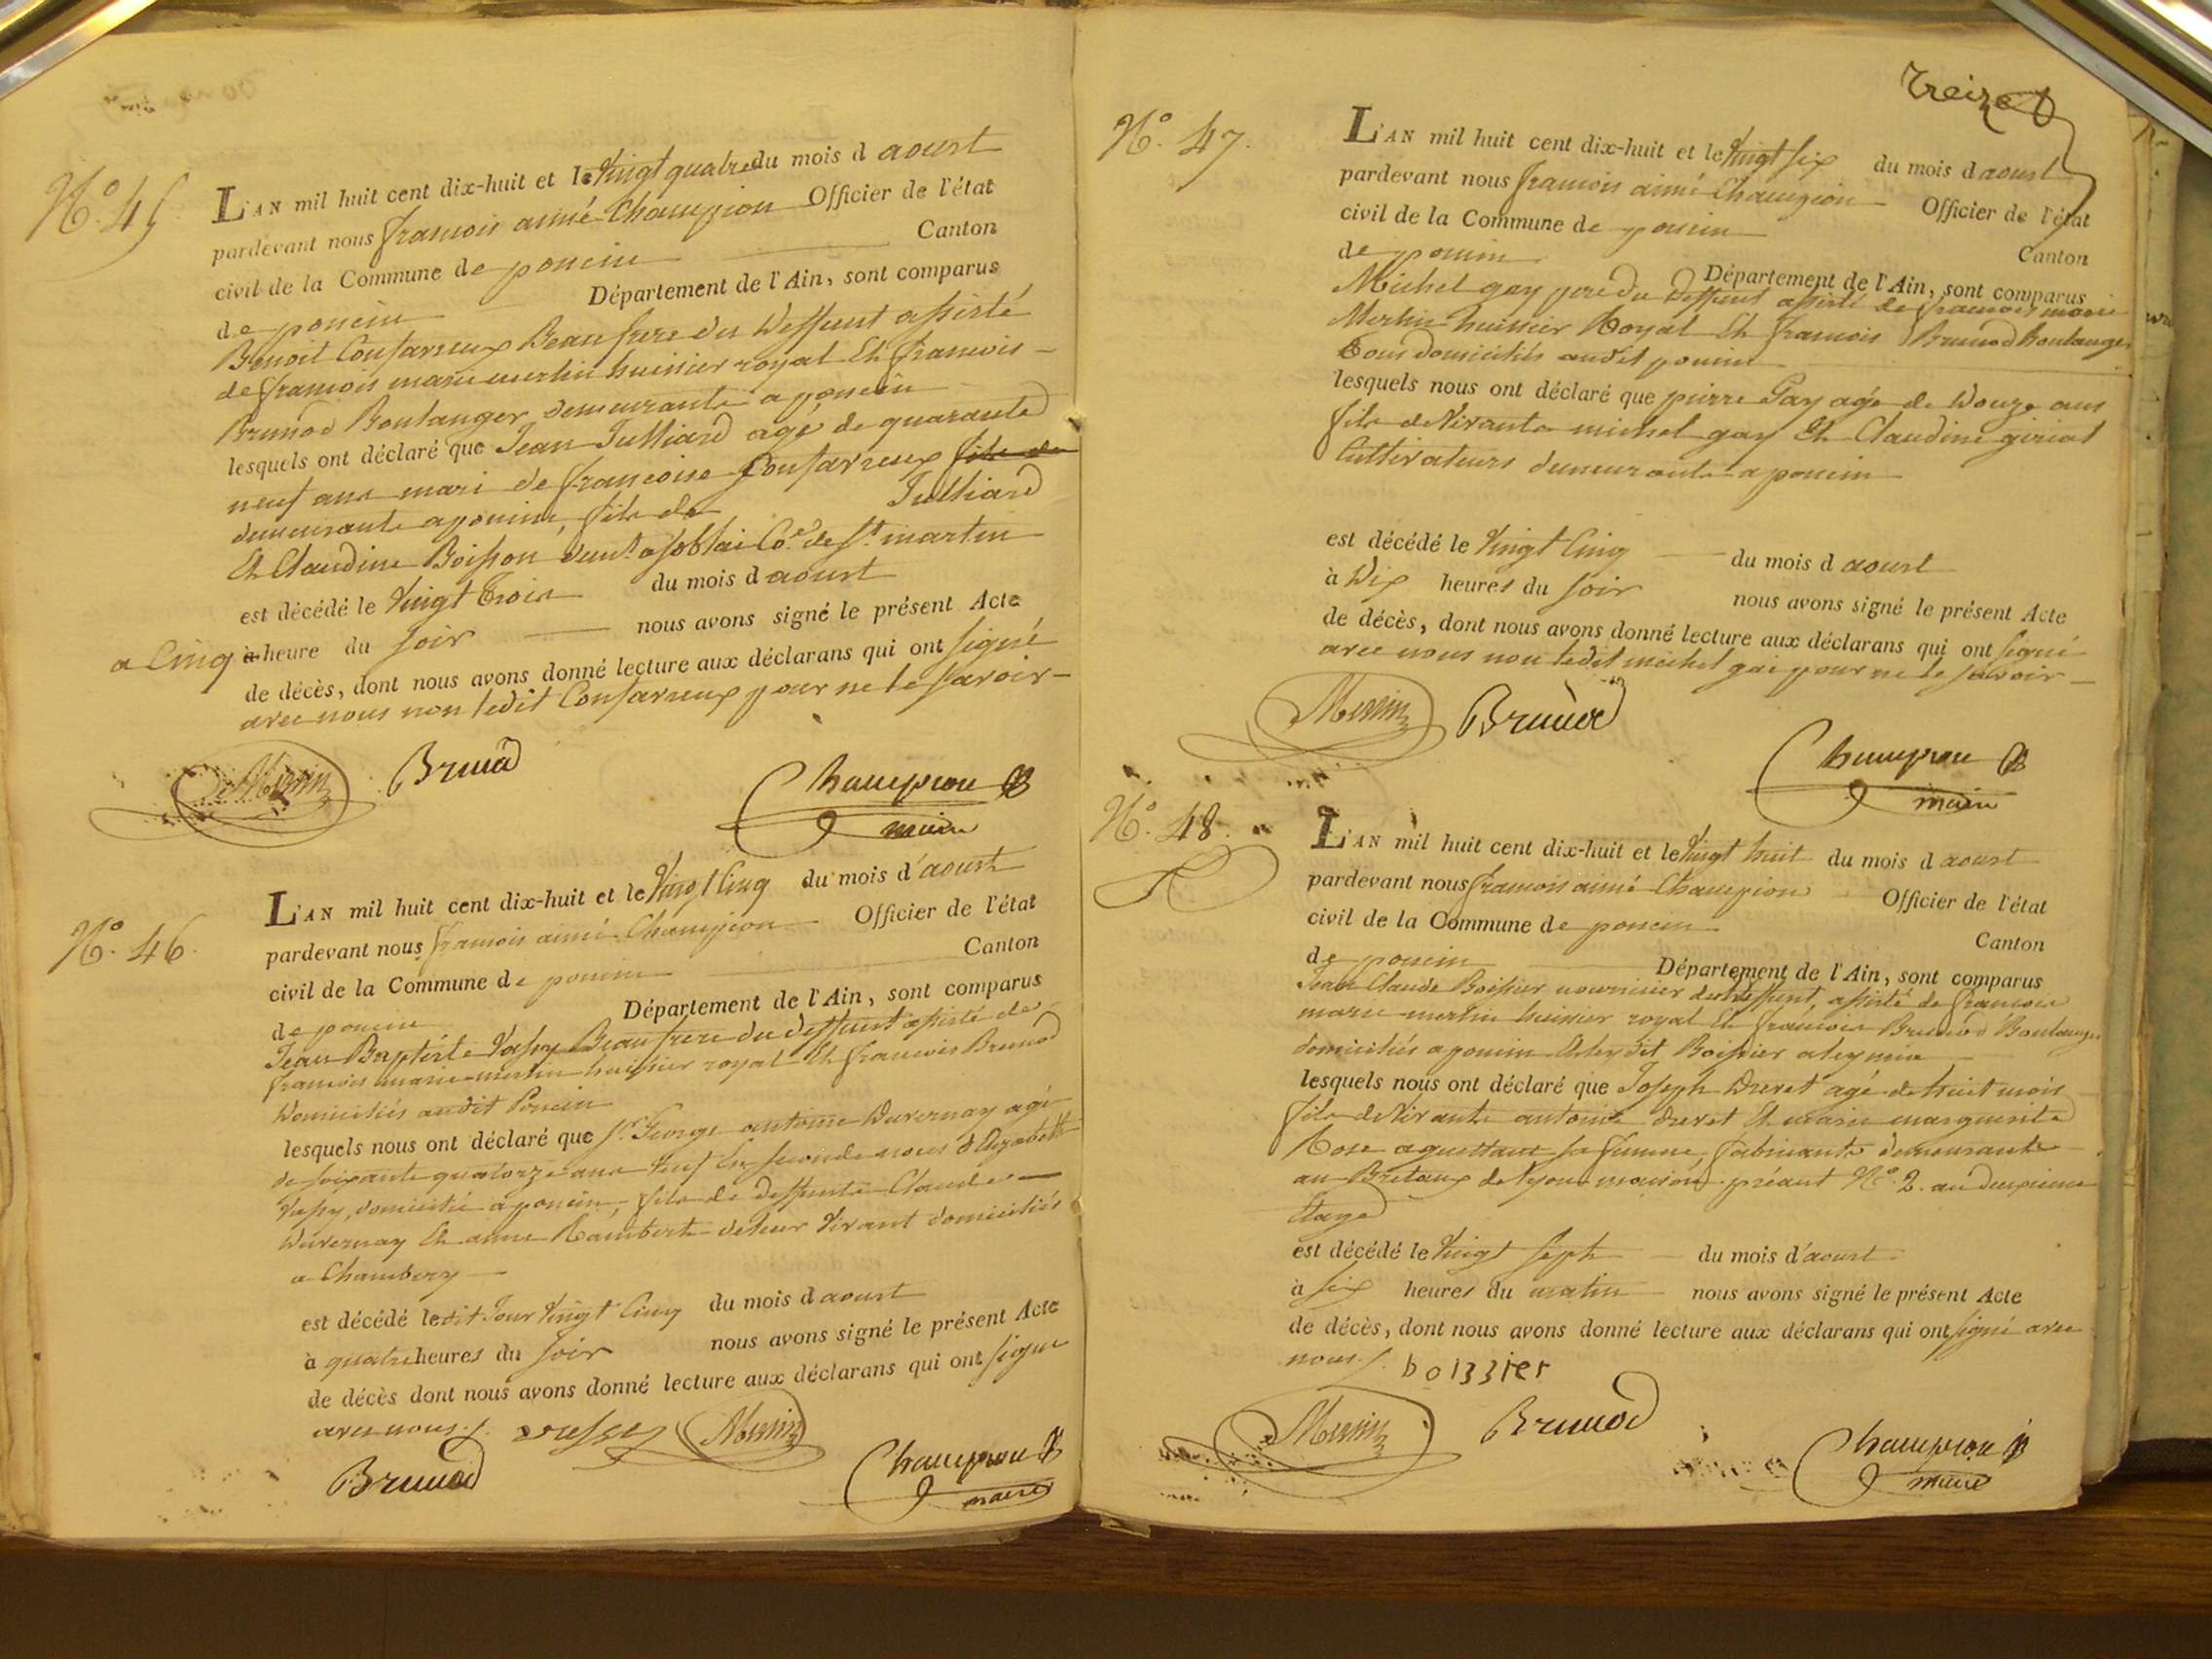 N.° 45
L'AN mil huit cent dix-huit et le Vingt quatre du mois d aoust
pardevant nous françois aimé Champion Officier de l'état
civil de la Commune de poncin Canton
de poncin Département de l'Ain, sont comparus
Benoit Beaufrere du Deffunt assisté
de françois marie merlin huissier royal Et françois
Brunod Boulanger demeurants a poncin
lesquels ont déclaré que Jean Julliard agé de quarante
neuf ans mari de françoise fils de
demeurants a poncin, fils de Julliard
Et Claudine Boisson de St martin
est décédé le Vingt Trois du mois d aoust
a Cinq à heure du Soir nous avons signé le présent Acte
de décès, dont nous avons donné lecture aux déclarans qui ont signé
avec nous non ledit pour ne le savoir
Merlin Brunod
Champion
maire
N.° 46.
L'AN mil huit cent dix-huit et le Vingt Cinq du mois d'aoust
pardevant nous françois aimé Champion Officier de l'état
civil de la Commune de poncin Canton
de poncin Département de l'Ain, sont comparus
Jean Baptiste Beaufrere du deffunt assisté de
françois marie merlin huissier royal Et francois Brunod
Domiciliés audit Poncin
lesquels nous ont déclaré que Sr. George antoine Duvernay agé
de soixante quatorze ans Veuf En seconde noces d'Elizabeth
domicilié a poncin, fils de deffunts Claude
Duvernay Et anne Rambert de leur Vivant domiciliés
a Chambery
est décédé ledit Jour Vingt Cinq du mois d aoust
à quatre heures du Soir nous avons signé le présent Acte
de décès dont nous avons donné lecture aux déclarans qui ont signé
avec nous Merlin
Brunod Champion
maire
Treize
N.° 47.
L'AN mil huit cent dix-huit et le Vingt Six du mois d aoust
pardevant nous françois aimé Champion Officier de l'état
civil de la Commune de poncin Canton
de poncin Département de l'Ain, sont comparus
Michel gay pere du Deffunt assisté de francois marie
Merlin huissier Royal Et francois Brunod Boulanger
tous domiciliés audit poncin
lesquels nous ont déclaré que pierre Gay agé de Douze ans
fils de Vivants michel gay Et Claudine giriat
Cultivateurs demeurants a poncin
est décédé le Vingt Cinq du mois d aoust
à Dix heures du Soir nous avons signé le présent Acte
de décès, dont nous avons donné lecture aux déclarans qui ont signé
avec nous non ledit michel gai pour ne le savoir
Merlin Brunod
Champion
maire
N.° 48.
L'AN mil huit cent dix-huit et le Vingt huit du mois d aoust
pardevant nous francois aimé Champion Officier de l'état
civil de la Commune de poncin Canton
de poncin Département de l'Ain, sont comparus
Jean Claude Boissier nourricier du deffunt, assisté de francois
marie merlin huissier royal Et francois Brunod Boulanger
domiciliés a poncin Et ledit Boissier a leymia
lesquels nous ont déclaré que Joseph Dreret agé de huit mois
fils de Vivants antoine Dreret Et marie marguerite
Rose sa femme, fabricants demeurants
au Bretaux de Lyon maison préaut N.° 2. au deuxieme
Etage
est décédé le Vingt Sept du mois d'aoust
à Six heures du matin nous avons signé le présent Acte
de décès, dont nous avons donné lecture aux déclarans qui ont signé avec
nous boissier
Merlin Brunod
Champion
maire